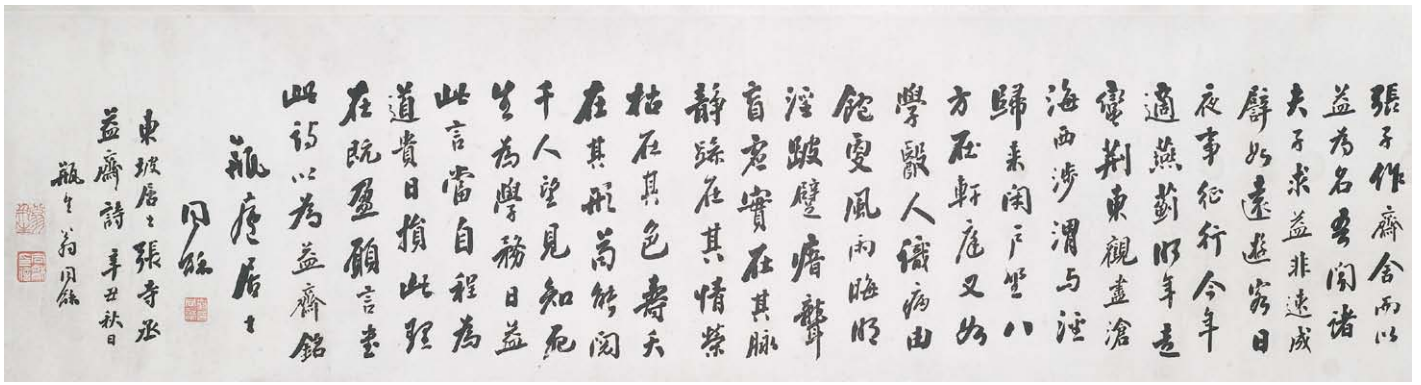 張子作齋舍而以
益為名吾聞諸
夫子求益非速成
譬如遠遊客日
夜事征行今年
適燕薊明年走
蠻荊東觀盡滄
海西涉渭与涇
歸来閉戶坐八
方在軒庭又如
學醫人識病由
飽更風雨晦明
淫跛躄瘖聾
盲虛實在其脉
靜躁在其情榮
枯在其色壽夭
在其形苟能閱
千人望見知死
生為學務日益
此言當自程為
道貴日損此理
在既盈願言書
此詩以為益齋銘
瓶廬居士
同龢
東坡居士張寺丞
益齋詩 辛丑秋日
瓶生翁同龢